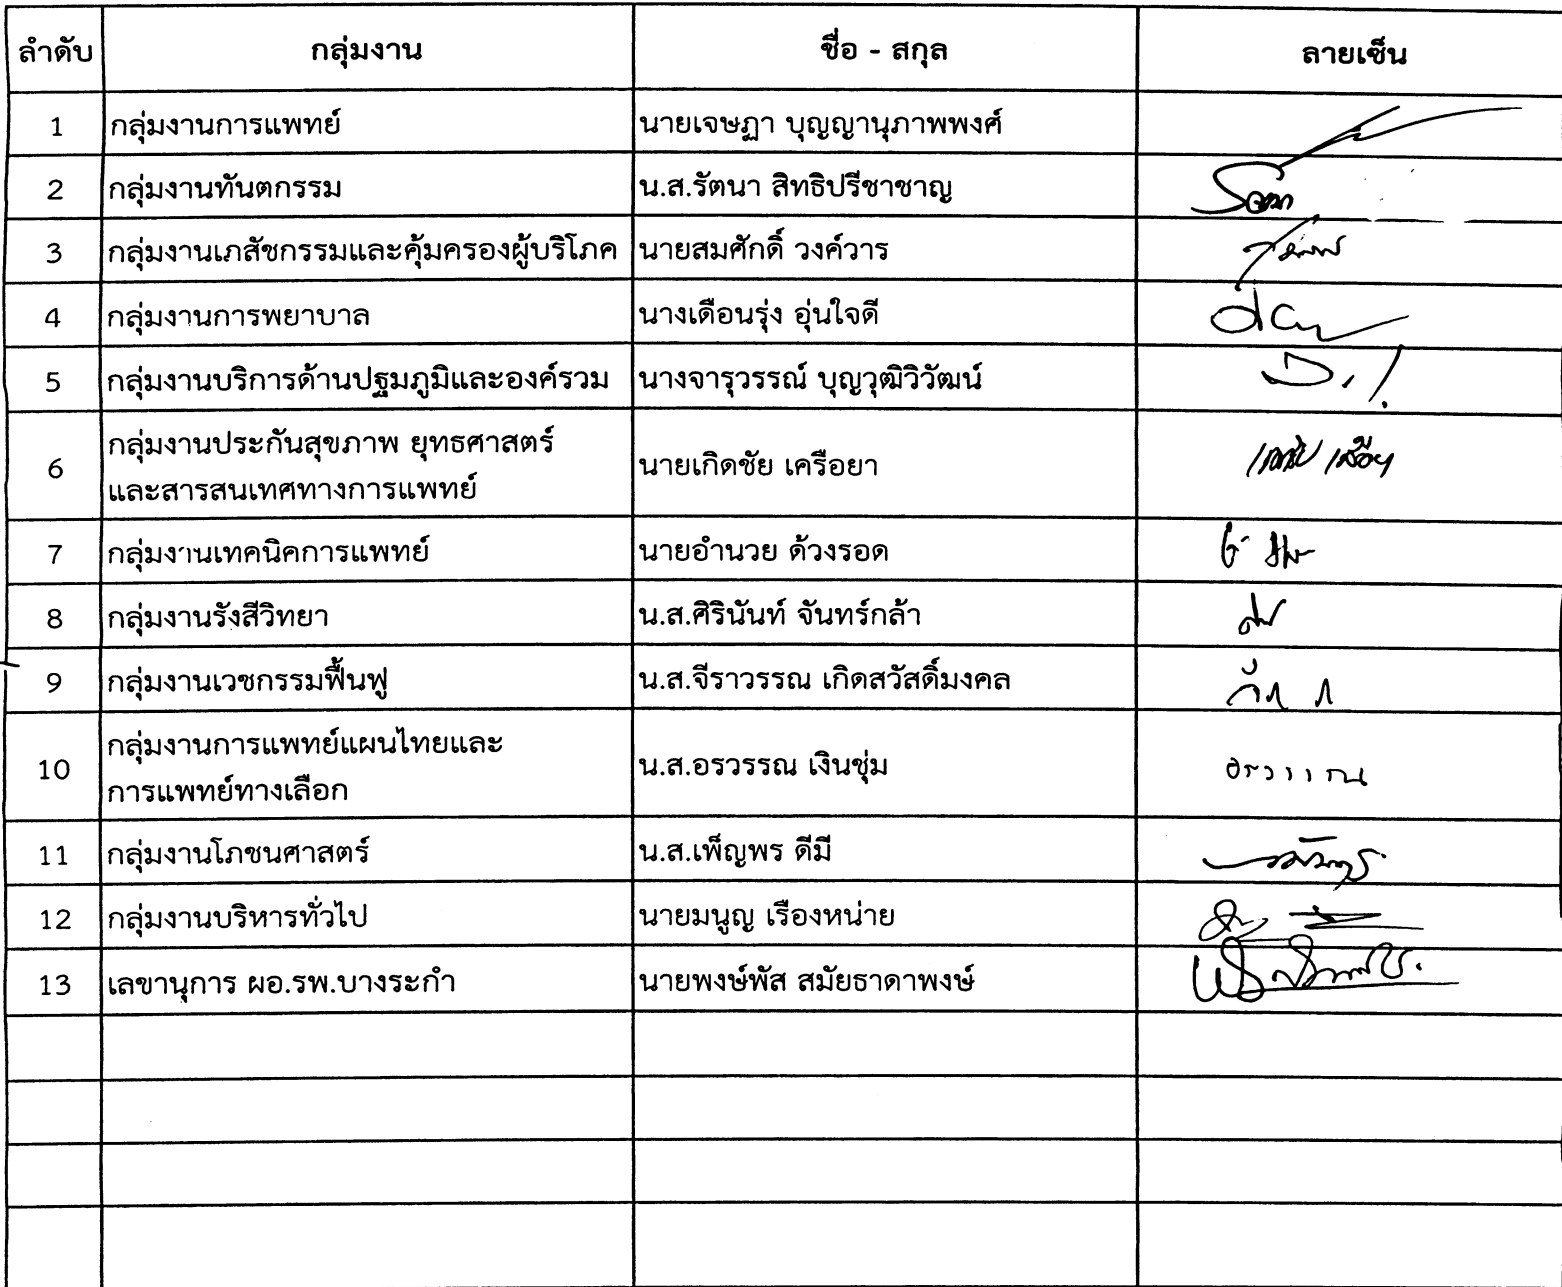 ลำดับ กลุ่มงาน ชื่อ - สกุล ลายเซ็น
1 กลุ่มงานการแพทย์ นายเจษฏา บุญญานุภาพพงศ์
2 กลุ่มงานทันตกรรม น.ส.รัตนา สิทธิปรีชาชาญ
3 กลุ่มงานเภสัชกรรมและคุ้มครองผู้บริโภค นายสมศักดิ์ วงค์วาร
4 กลุ่มงานการพยาบาล นางเดือนรุ่ง อุ่นใจดี
5 กลุ่มงานบริการด้านปฐมภูมิและองค์รวม นางจารุวรรณ์ บุญวุฒิวิวัฒน์
6 กลุ่มงานประกันสุขภาพ ยุทธศาสตร์
และสารสนเทศทางการแพทย์ นายเกิดชัย เครือยา
7 กลุ่มงานเทคนิคการแพทย์ นายอำนวย ด้วงรอด
8 กลุ่มงานรังสีวิทยา น.ส.ศิรินันท์ จันทร์กล้า
9 กลุ่มงานเวชกรรมฟื้นฟู น.ส.จีราวรรณ เกิดสวัสดิ์มงคล
10 กลุ่มงานการแพทย์แผนไทยและ
การแพทย์ทางเลือก น.ส.อรวรรณ เงินชุ่ม อรวรรณ
11 กลุ่มงานโภชนศาสตร์ น.ส.เพ็ญพร ดีมี
12 กลุ่มงานบริหารทั่วไป นายมนูญ เรืองหน่าย
13 เลขานุการ ผอ.รพ.บางระกำ นายพงษ์พัส สมัยธาดาพงษ์